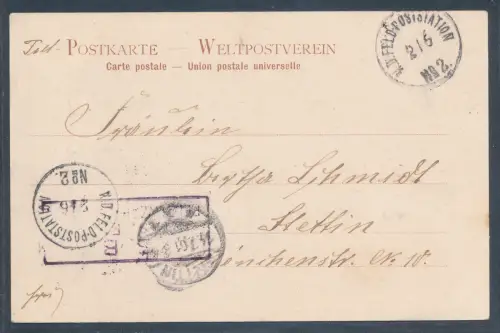 POSTKARTE — WELTPOSTVEREIN
Carte postale — Union postale universelle
K.D. FELD-POSTSTATION
2/6
No 2.
Fräulein
Bertha Schmidt
Stettin
No 10.
K.D. FELD-POSTSTATION
2/6
No 2.
STETTIN